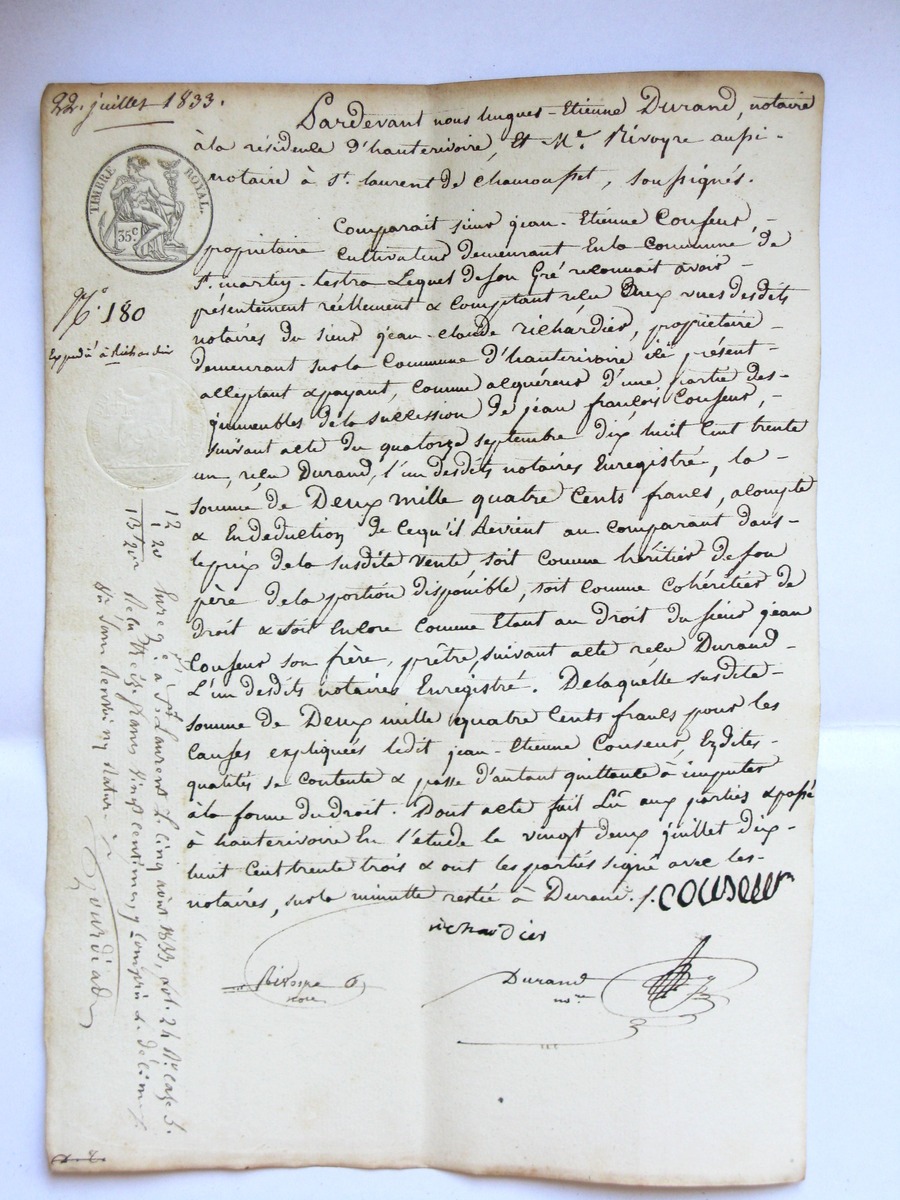 22. juillet 1833.
Pardevant nous hugues-Etienne Durand, notaire
à la résidence d'hauterivoire, Et Me. Rivoyre aussi-
notaire à St. laurent de chamousset, soussignés.
TIMBRE ROYAL.
35c
Comparait sieur jean-Etienne Couseur,-
propriétaire Cultivateur demeurant En la Commune de
St. martin-lestra Lequel de son Gré reconnait avoir-
No. 180
présentement réellement & Comptant reçu Deux vues desdits
notaires du sieur jean-claude richardier, propriétaire-
Expédié à Richardier
demeurant sur la Commune d'hauterivoire ici présent-
acceptant & payant, Comme acquéreur d'une partie des-
immeubles de la succession de jean françois Couseur,-
suivant acte du quatorze septembre dix huit Cent trente
un, reçu Durand, l'un desdits notaires Enregistré, la-
somme de Deux mille quatre Cents francs, acompte
& En déduction de Cequ'il Revient au Comparant dans-
le prix de la susdite vente, soit Comme héritier de son
père de la portion disponible, soit comme cohéritier de
droit & soit Encore Comme Etant au Droit du sieur jean
Couseur son frère, prêtre, suivant acte reçu Durand-
L'un desdits notaires Enregistré. De laquelle susdite-
somme de Deux mille quatre Cents francs pour les
Causes expliquées ledit jean-Etienne Couseur, Ezdites-
qualités se Contente & passe d'autant quittance à imputer
à la forme du droit. Dont acte fait Lû aux parties & passé
à hauterivoire En l'étude le vingt deux juillet dix-
huit Cent trente trois & ont les parties signé avec les-
notaires, sur la minutte restée à Durand. /. couseur
richardier
Rivoyre
nore
Durand
nore
12
1 20
13 20
Enreg. à St. Laurent le cinq août 1833, vol. 24 No. case 5.
Reçu treize francs vingt centimes, y compris le décime